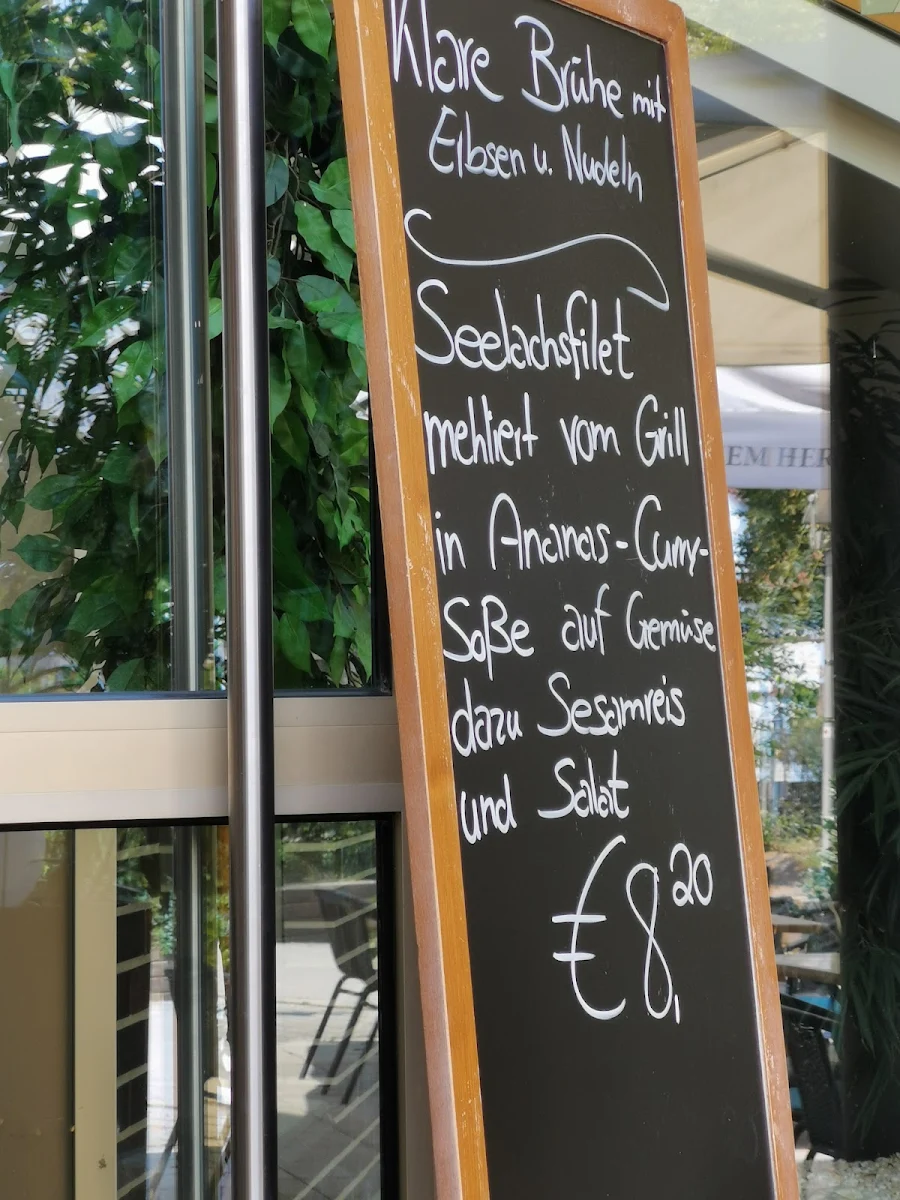 Klare Brühe mit
Elbsen u. Nudeln
Seelachsfilet
mehliert vom Grill
in Ananas-Curry-
Soße auf Gemüse
dazu Sesamreis
und Salat
€8,20
EM HER